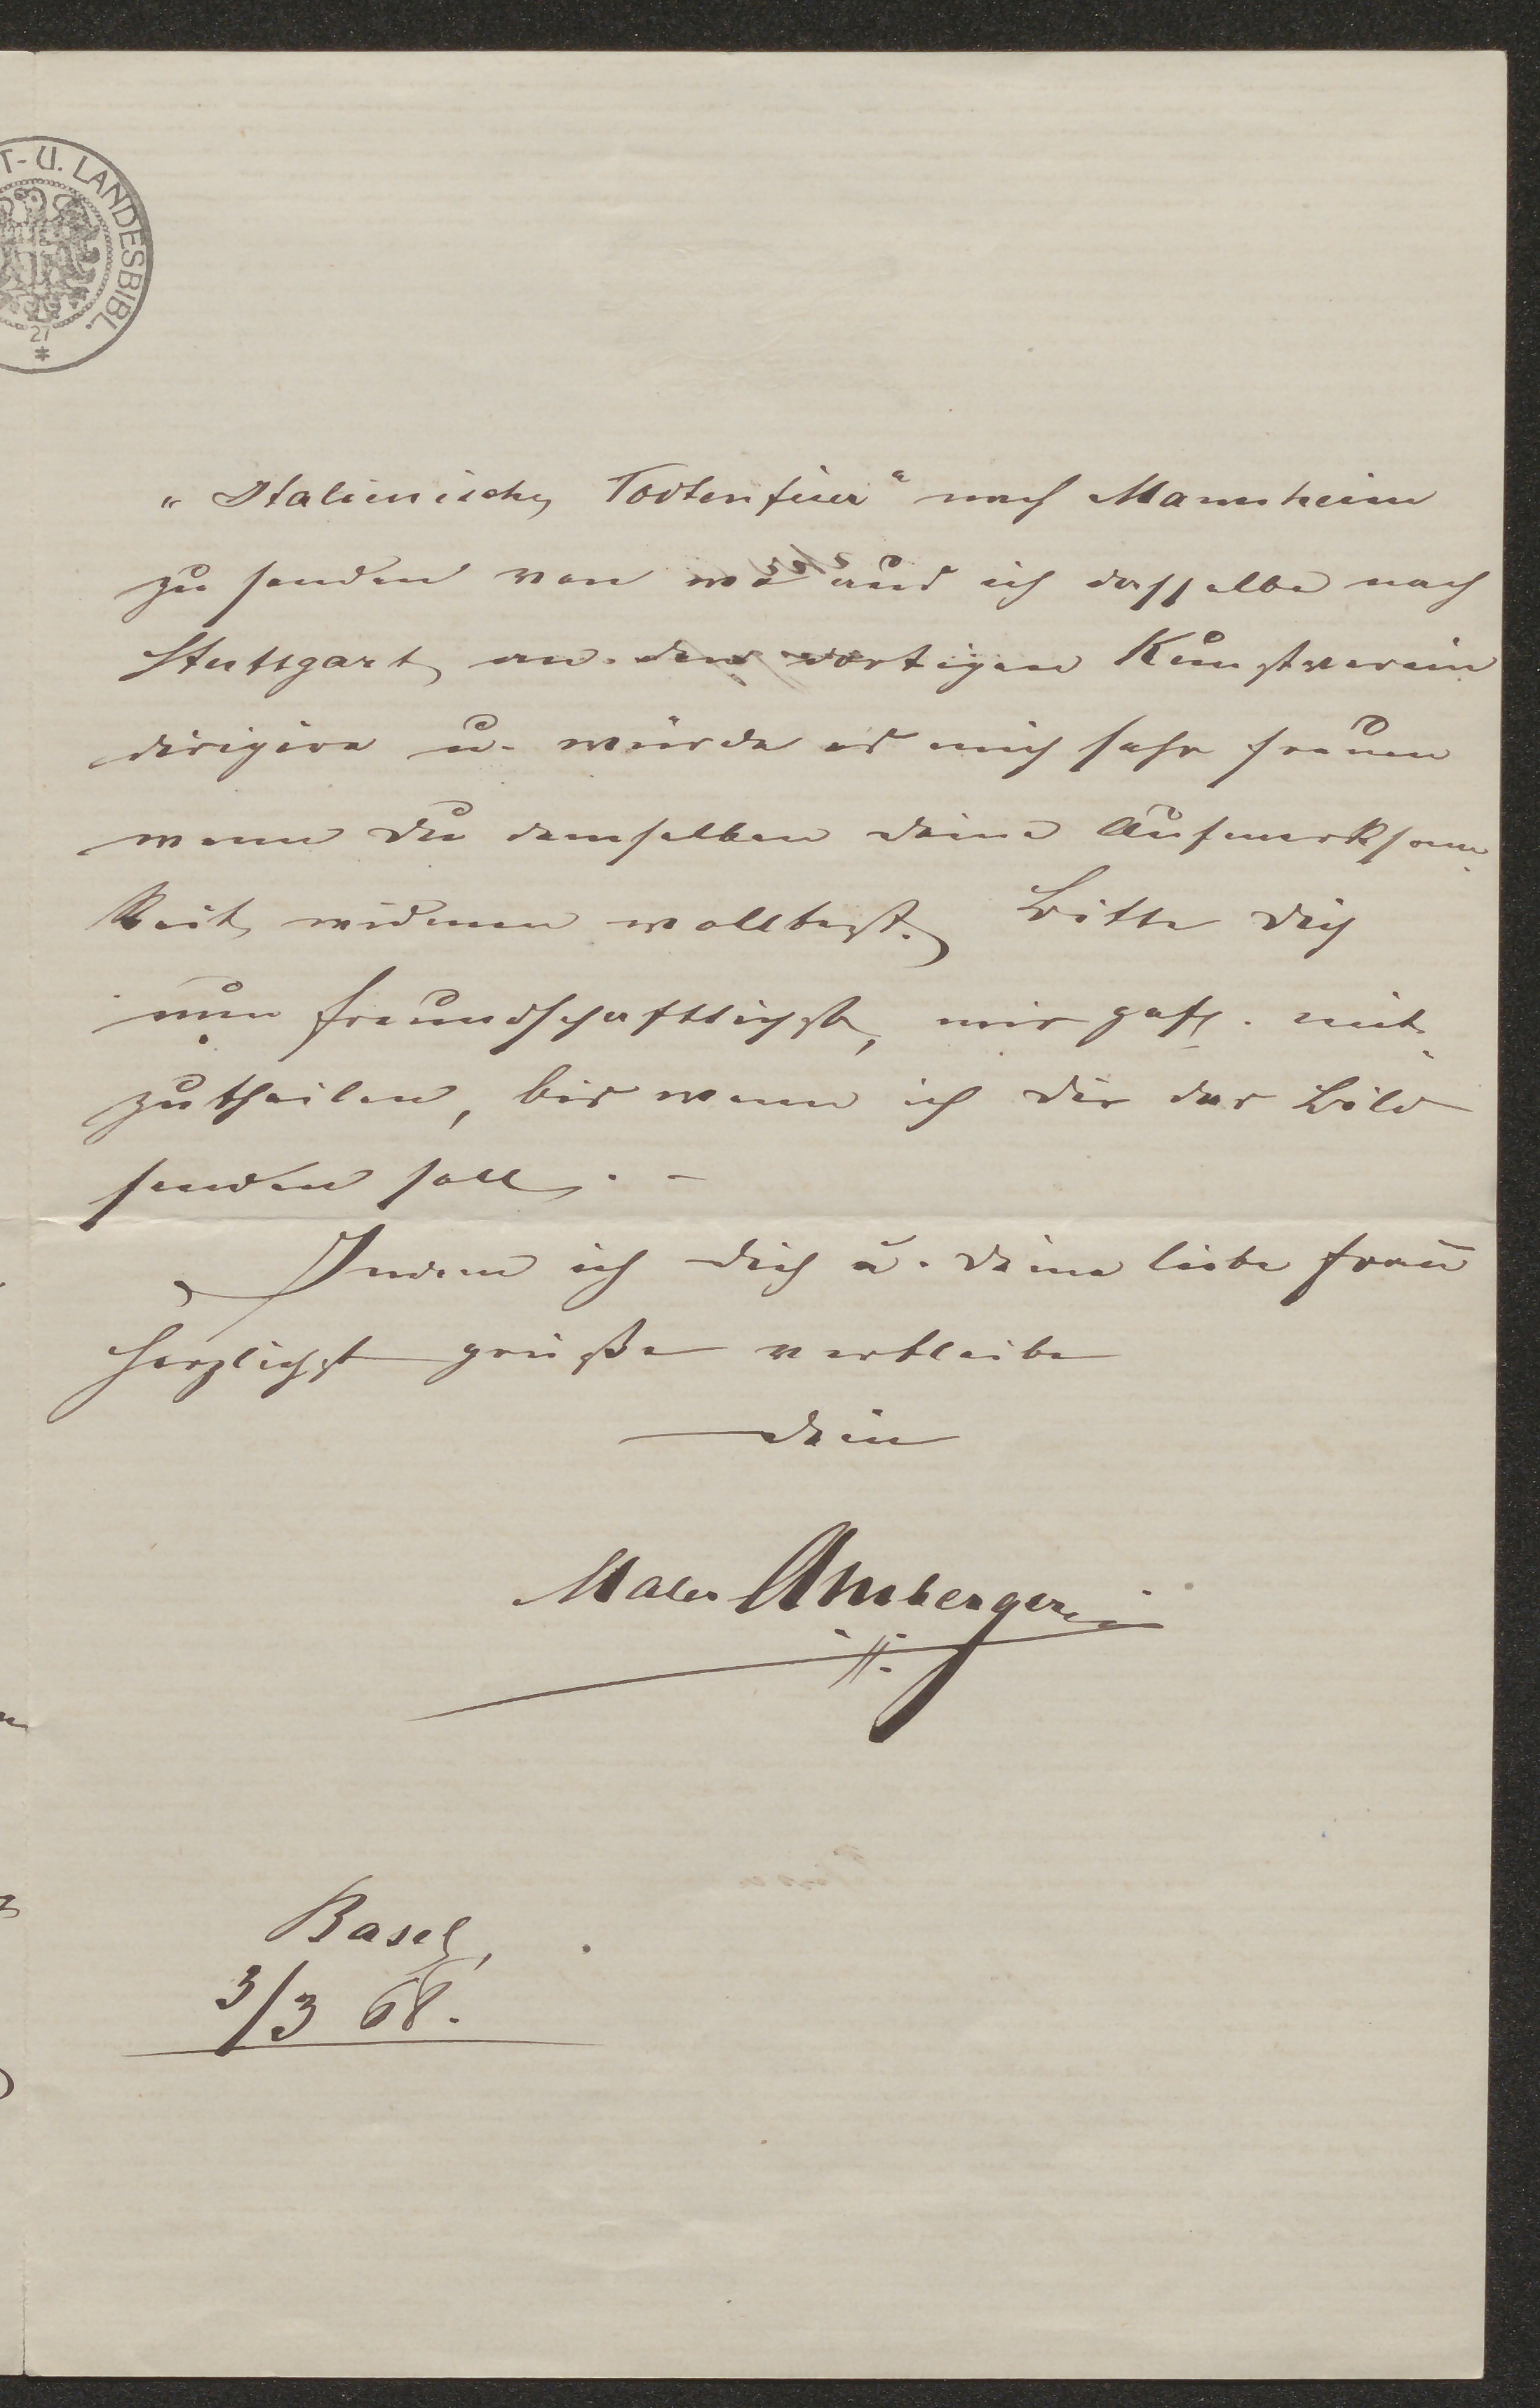 T-U. LANDESBIBL.
27
„Italienische Todtenfeier“ nach Mannheim
zu senden von wo aus ich dasselbe nach
Stuttgart an den dortigen Kunstverein
dirigire u. würde es mich sehr freuen
wenn du demselben deine Aufmerksam-
keit widmen wolltest. Bitte dich
nun freundschaftlichst, mir gefl. mit-
zutheilen, bis wann ich dir das Bild
senden soll. –
Indem ich dich u. deine liebe Frau
herzlichst grüße verbleibe
dein
Maler Amberger
Basel,
3/3 68.